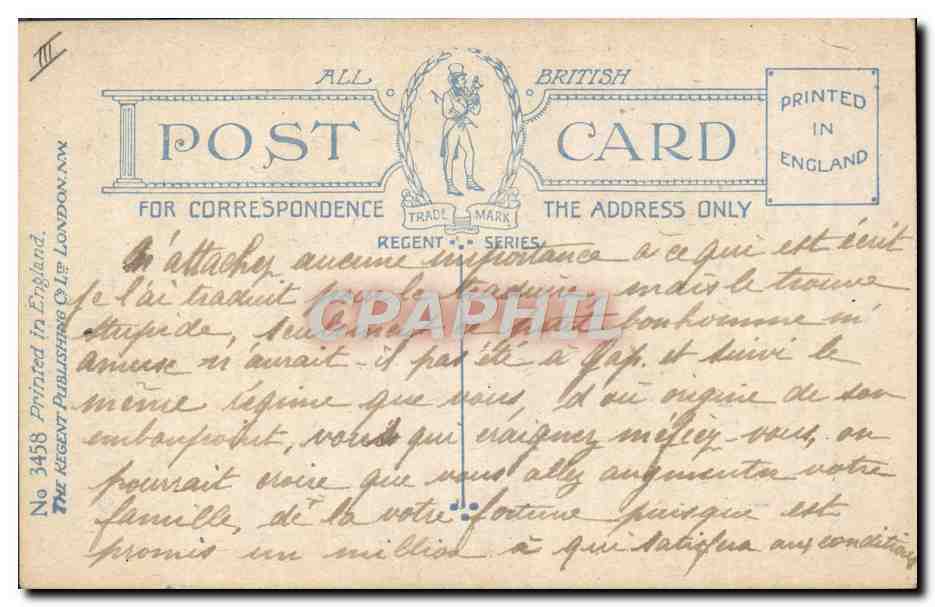 III
ALL BRITISH
POST CARD
PRINTED
IN
ENGLAND
FOR CORRESPONDENCE THE ADDRESS ONLY
TRADE MARK
REGENT SERIES
No 3458 Printed in England.
THE REGENT PUBLISHING Co LTD LONDON. N.W.
N'attachez aucune importance à ce qui est écrit
je l'ai traduit pour le traduire, mais le trouve
stupide, seulement ce petit bonhomme m'
amuse n'aurait-il pas été à Gap. et suivi le
même régime que vous, d'où origine de son
embonpoint, vous qui craignez méfiez-vous, on
pourrait croire que vous allez augmenter votre
famille, de là votre fortune puisque est
promis un million à qui satisfera aux conditions
CPARAMA